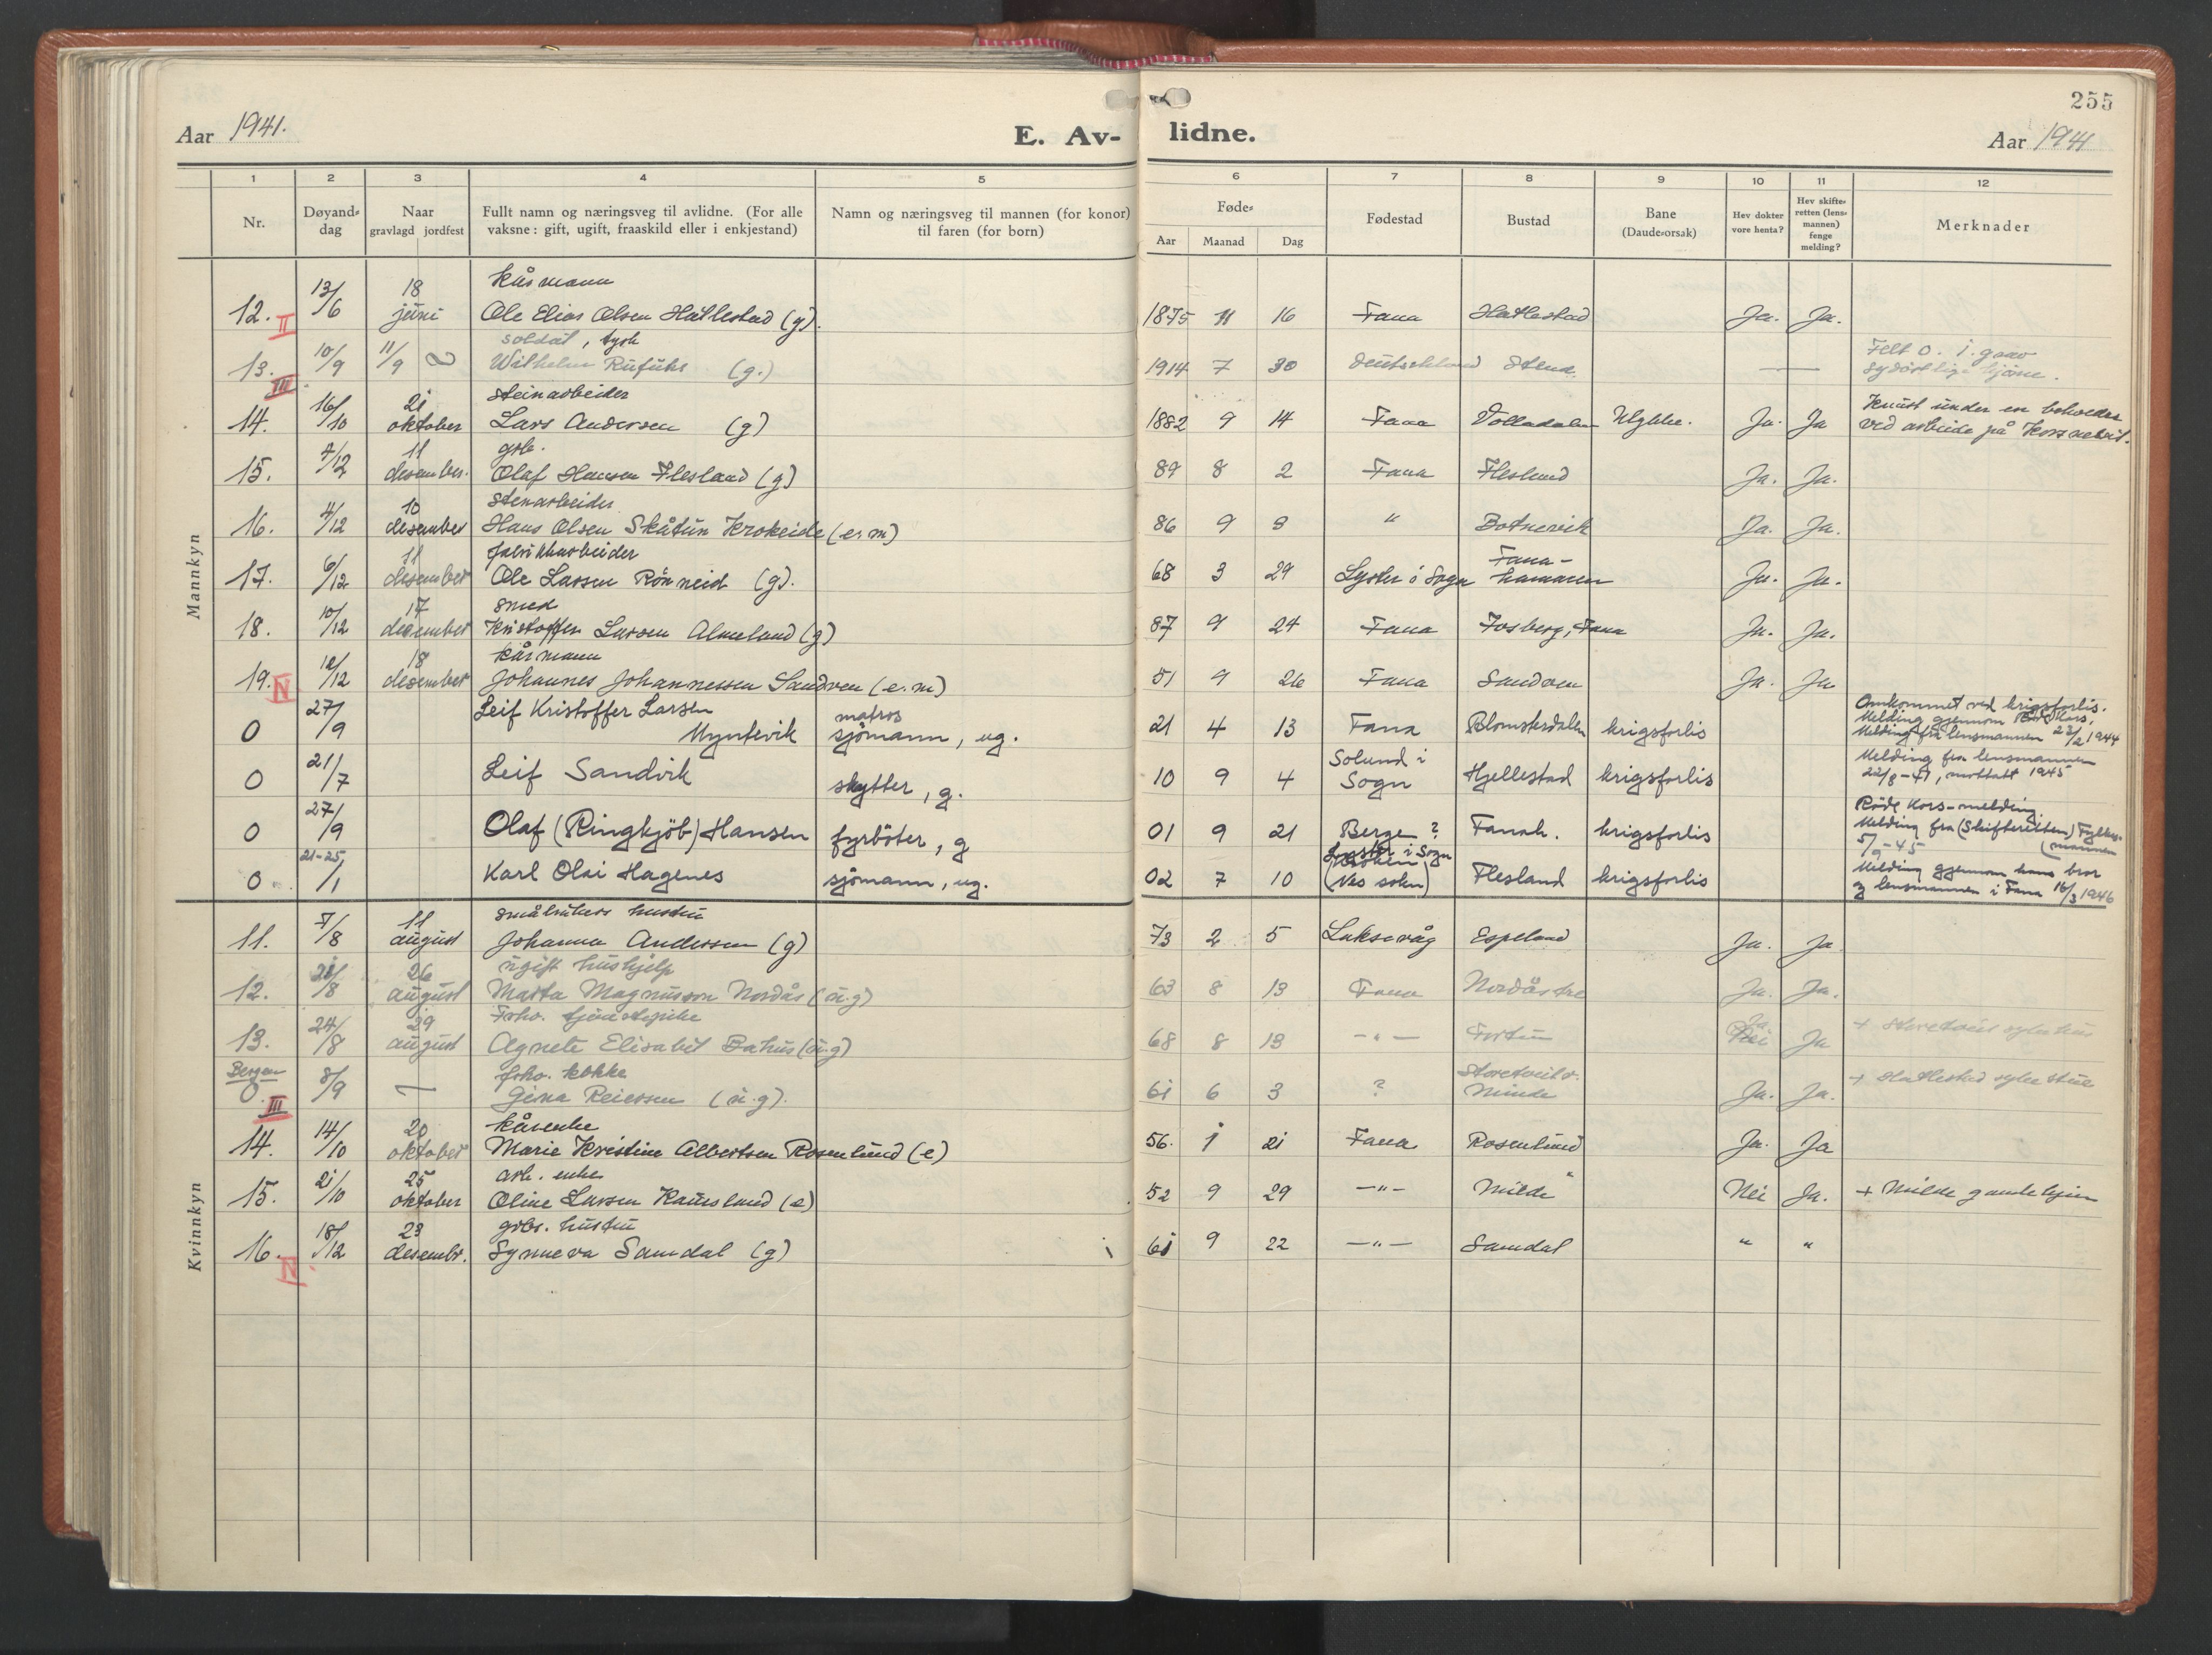 255
Aar 1941.
E. Av-lidne.
Aar 1941
1 2 3 4 5 6 7 8 9 10 11 12
Nr.
Døyand-dag
Naar gravlagd jordfest
Fullt namn og næringsveg til avlidne. (For alle vaksne: gift, ugift, fraaskild eller i enkjestand)
Namn og næringsveg til mannen (for konor) til faren (for born)
Føde-
Aar Maanad Dag
Fødestad
Bustad
Bane (Daude-orsak)
Hev dokter vore henta?
Hev skifteretten (lensmannen) fenge melding?
Merknader
Mannkyn
kårmann
12. II 13/6 18 juni Ole Elias Olsen Hatlestad (g). 1875 11 16 Fana Hatlestad Ja. Ja.
soldat, tysk
13. III 10/9 11/9 Wilhelm Rufuhs (g.) 1914 7 30 Deutschland Stend. — Felt O. 1. grav
sydøstlige hjørne.
steinarbeider
14. 16/10 21 oktober Lars Andersen (g) 1882 9 14 Fana Volladalen Ulykke. Ja. Ja Knust under en
ved arbeide på
grb.
15. 4/12 11 desember. Olaf Hansen Flesland (g) 89 8 2 Fana Flesland Ja. Ja.
stenarbeider
16. 4/12 10 desember Hans Olsen Skåtun Krokeide (e.m) 86 9 3 " Botnevik Ja. Ja.
fabrikkarbeider
17. 6/12 11 desember Ole Larsen Rönneid (g). 68 3 29 Lyster i Sogn Fana-hammeren Ja. Ja.
smed
18. 10/12 17 desember Kristoffer Larsen Almeland (g) 87 9 24 Fana Fosberg, Fana Ja. Ja.
kårmann
19. IV 12/12 18 desember Johannes Johannessen Sandven (e.m) 51 9 26 Fana Sandven Ja. Ja
0 27/9 Leif Kristoffer Larsen Myntevik matros sjömann, ug. 21 4 13 Fana Blomsterdalen krigsforlis Omkommet ved krigsforlis.
Melding gjennom Röde Kors.
Melding fra lensmannen 23/2 1944
0 21/7 Leif Sandvik skytter, g. 10 9 4 Solund i Sogn Hjellestad krigsforlis Melding fra lensmannen
22/8-41, mottatt 1945
0 27/9 Olaf (Ringkjöb) Hansen fyrböter, g 01 9 21 Bergen ? Fanah. krigsforlis Röde Kors-melding
Melding fra (Skifteretten) Fylkesmannen
5/9-45
0 21-25/1 Karl Olai Hagenes sjömann, ug. 02 7 10 Luster i Sogn (Nes sokn) Flesland krigsforlis Melding gjennom hans bror
og lensmannen i Fana 16/3 1946
Kvinnkyn
småbrukers hustru
11. 7/8 11 august Johanna Andersen (g) 73 2 5 Laksevåg Espeland Ja. Ja
ugift hushjelp
12. 21/8 26 august Marta Magnusson Nordås (u.g) 63 8 13 Fana Nordås Ja. Ja.
Frhv. tjenestepike
13. 24/8 29 august Agnete Elisabet Bahus (u.g) 68 8 13 —"— Fortun Ja Nei Ja + Storetveit sykehus
Bergen frhv. kokke
0. III 8/9 — Gina Reiersen (u.g). 61 6 3 ? Storetveit v. Minde Ja. Ja. + Hatlestad sykestue
kårenke
14. 14/10 20 oktober Marie Kristine Albertsen Rosenlund (e) 56. 1 21 Fana Rosenlund Ja. Ja
arb. enke
15. 21/10 25 oktober Oline Larsen Raunsland (e) 52 9 29 —"— Milde Nei Ja. + Milde gamlehjem
grbr. hustru
16. IV 18/12 23 desembr. Synneva Samdal (g) 61 9 22 —"— Samdal " "